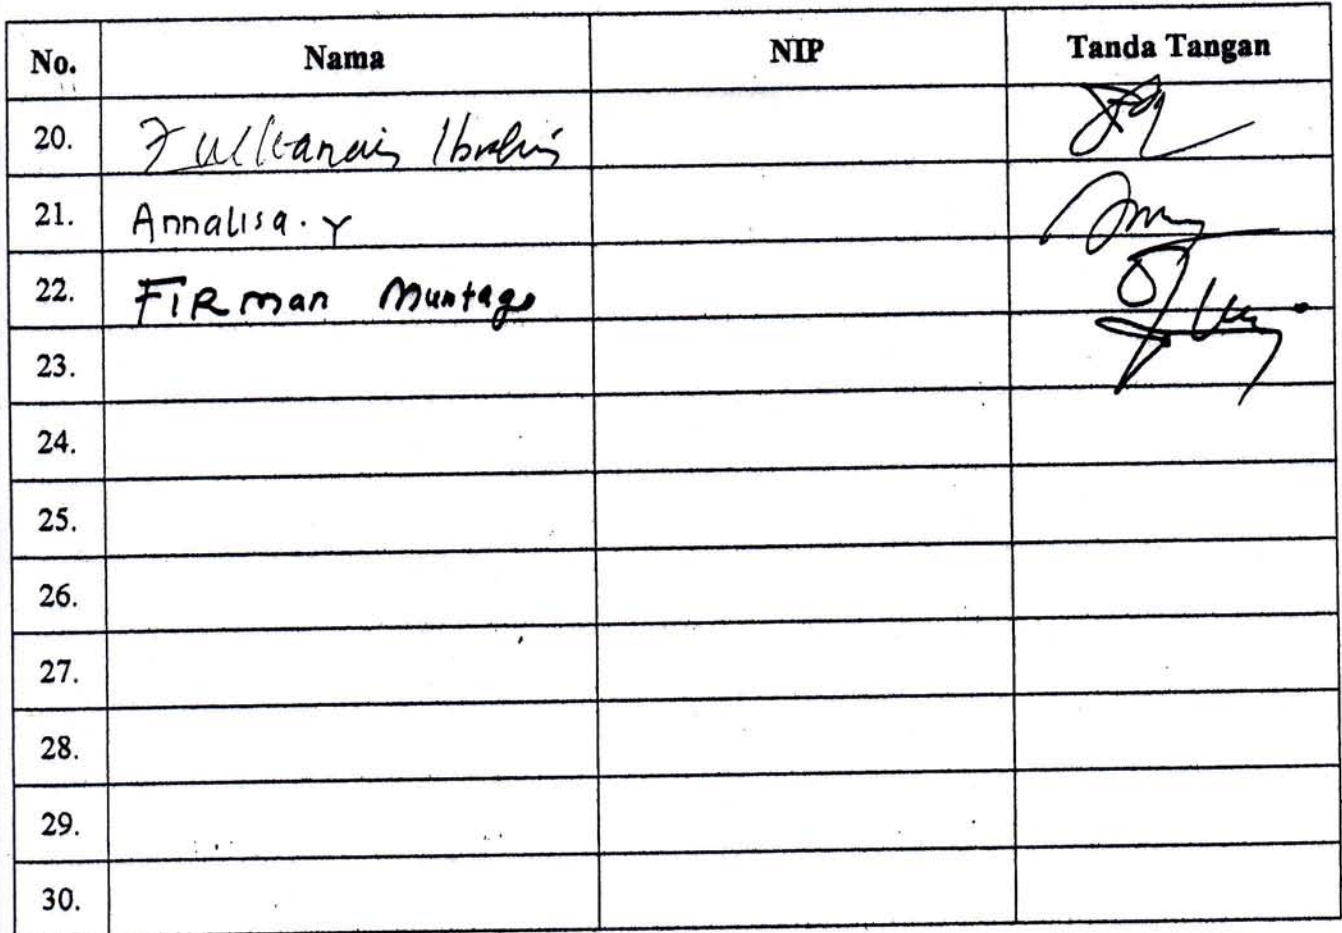 No. Nama NIP Tanda Tangan
20. Ibrahim
21. Annalisa. Y
22. FIRman Muntaqo
23.
24.
25.
26.
27.
28.
29.
30.